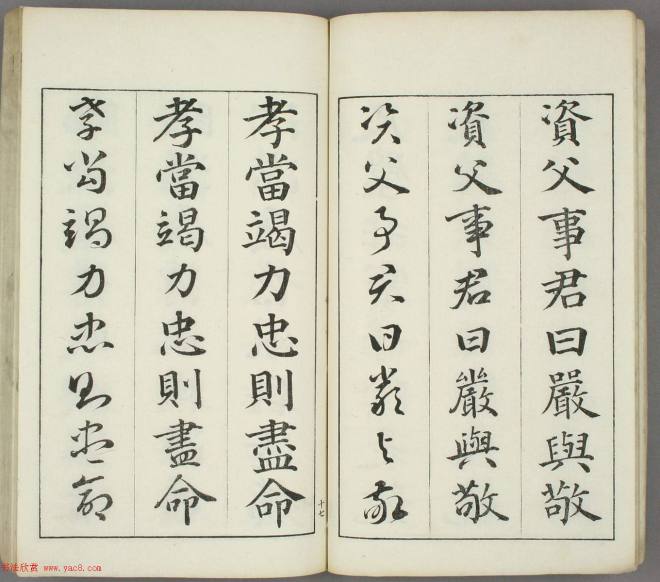 資父事君曰嚴與敬
資父事君曰嚴與敬
資父事君曰嚴與敬
孝當竭力忠則盡命
孝當竭力忠則盡命
孝當竭力忠則盡命
十七
书法欣赏 www.yac8.com